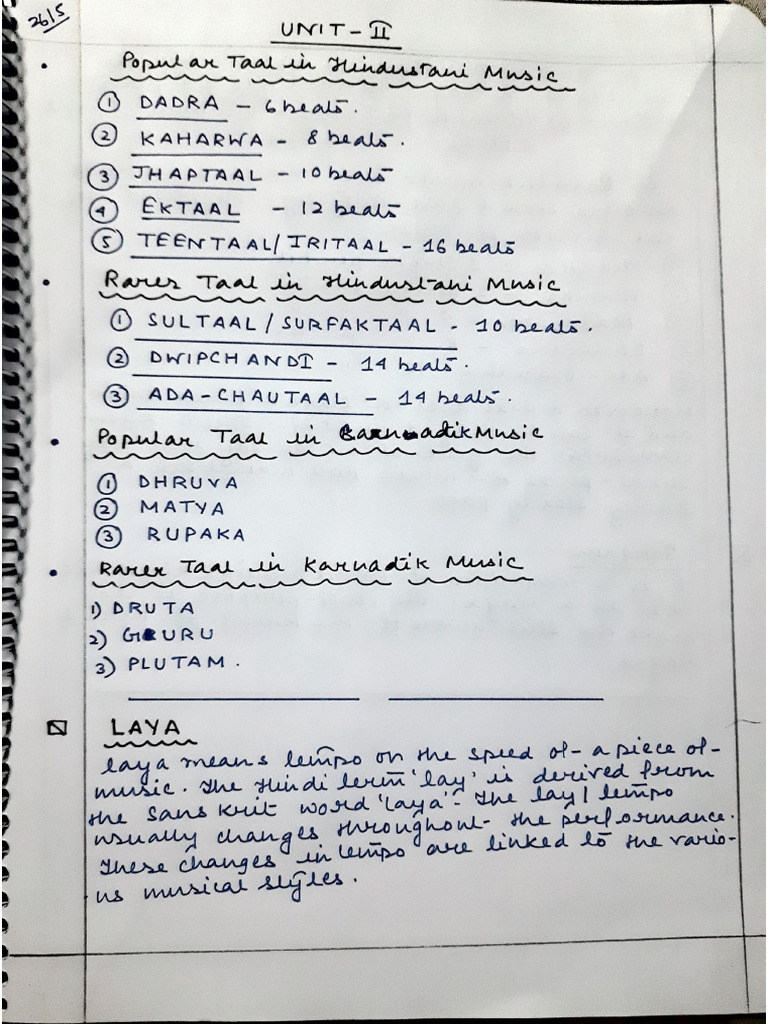 26/5
UNIT-II
• Popular Taal in Hindustani Music
① DADRA - 6 beats.
② KAHARWA - 8 beats.
③ JHAPTAAL - 10 beats
④ EKTAAL - 12 beats
⑤ TEENTAAL/IRITAAL - 16 beats
• Rarer Taal in Hindustani Music
① SULTAAL/SURFAKTAAL - 10 beats.
② DWIPCHANDI - 14 beats.
③ ADA-CHAUTAAL - 14 beats.
• Popular Taal in Karnadik Music
① DHRUVA
② MATYA
③ RUPAKA
• Rarer Taal in Karnadik Music
1) DRUTA
2) GURU
3) PLUTAM.
LAYA
laya means tempo or the speed of a piece of
music. The Hindi term 'lay' is derived from
the Sanskrit word 'laya'. The lay/tempo
usually changes throughout the performance.
These changes in tempo are linked to the vario-
us musical styles.